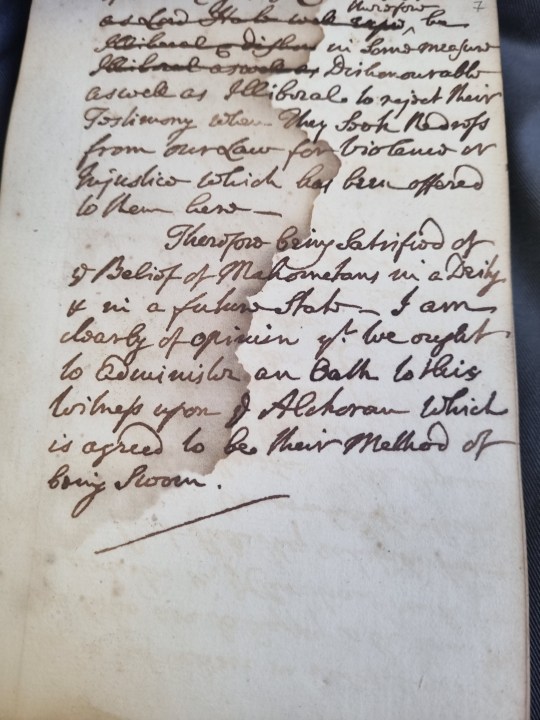 7
therefore
as Lord Hale well says, be
Illiberal & dishon in some measure
Illiberal as well as Dishonourable
as well as Illiberal to reject their
Testimony when They seek Redress
from our Law for Violence or
Injustice which has been offered
to them here —
Therefore being Satisfied of
ye Belief of Mahometans in a Deity
& in a future State — I am
clearly of opinion yt. we ought
to administer an Oath to this
Witness upon ye Alchoran which
is agreed to be their Method of
being Sworn.